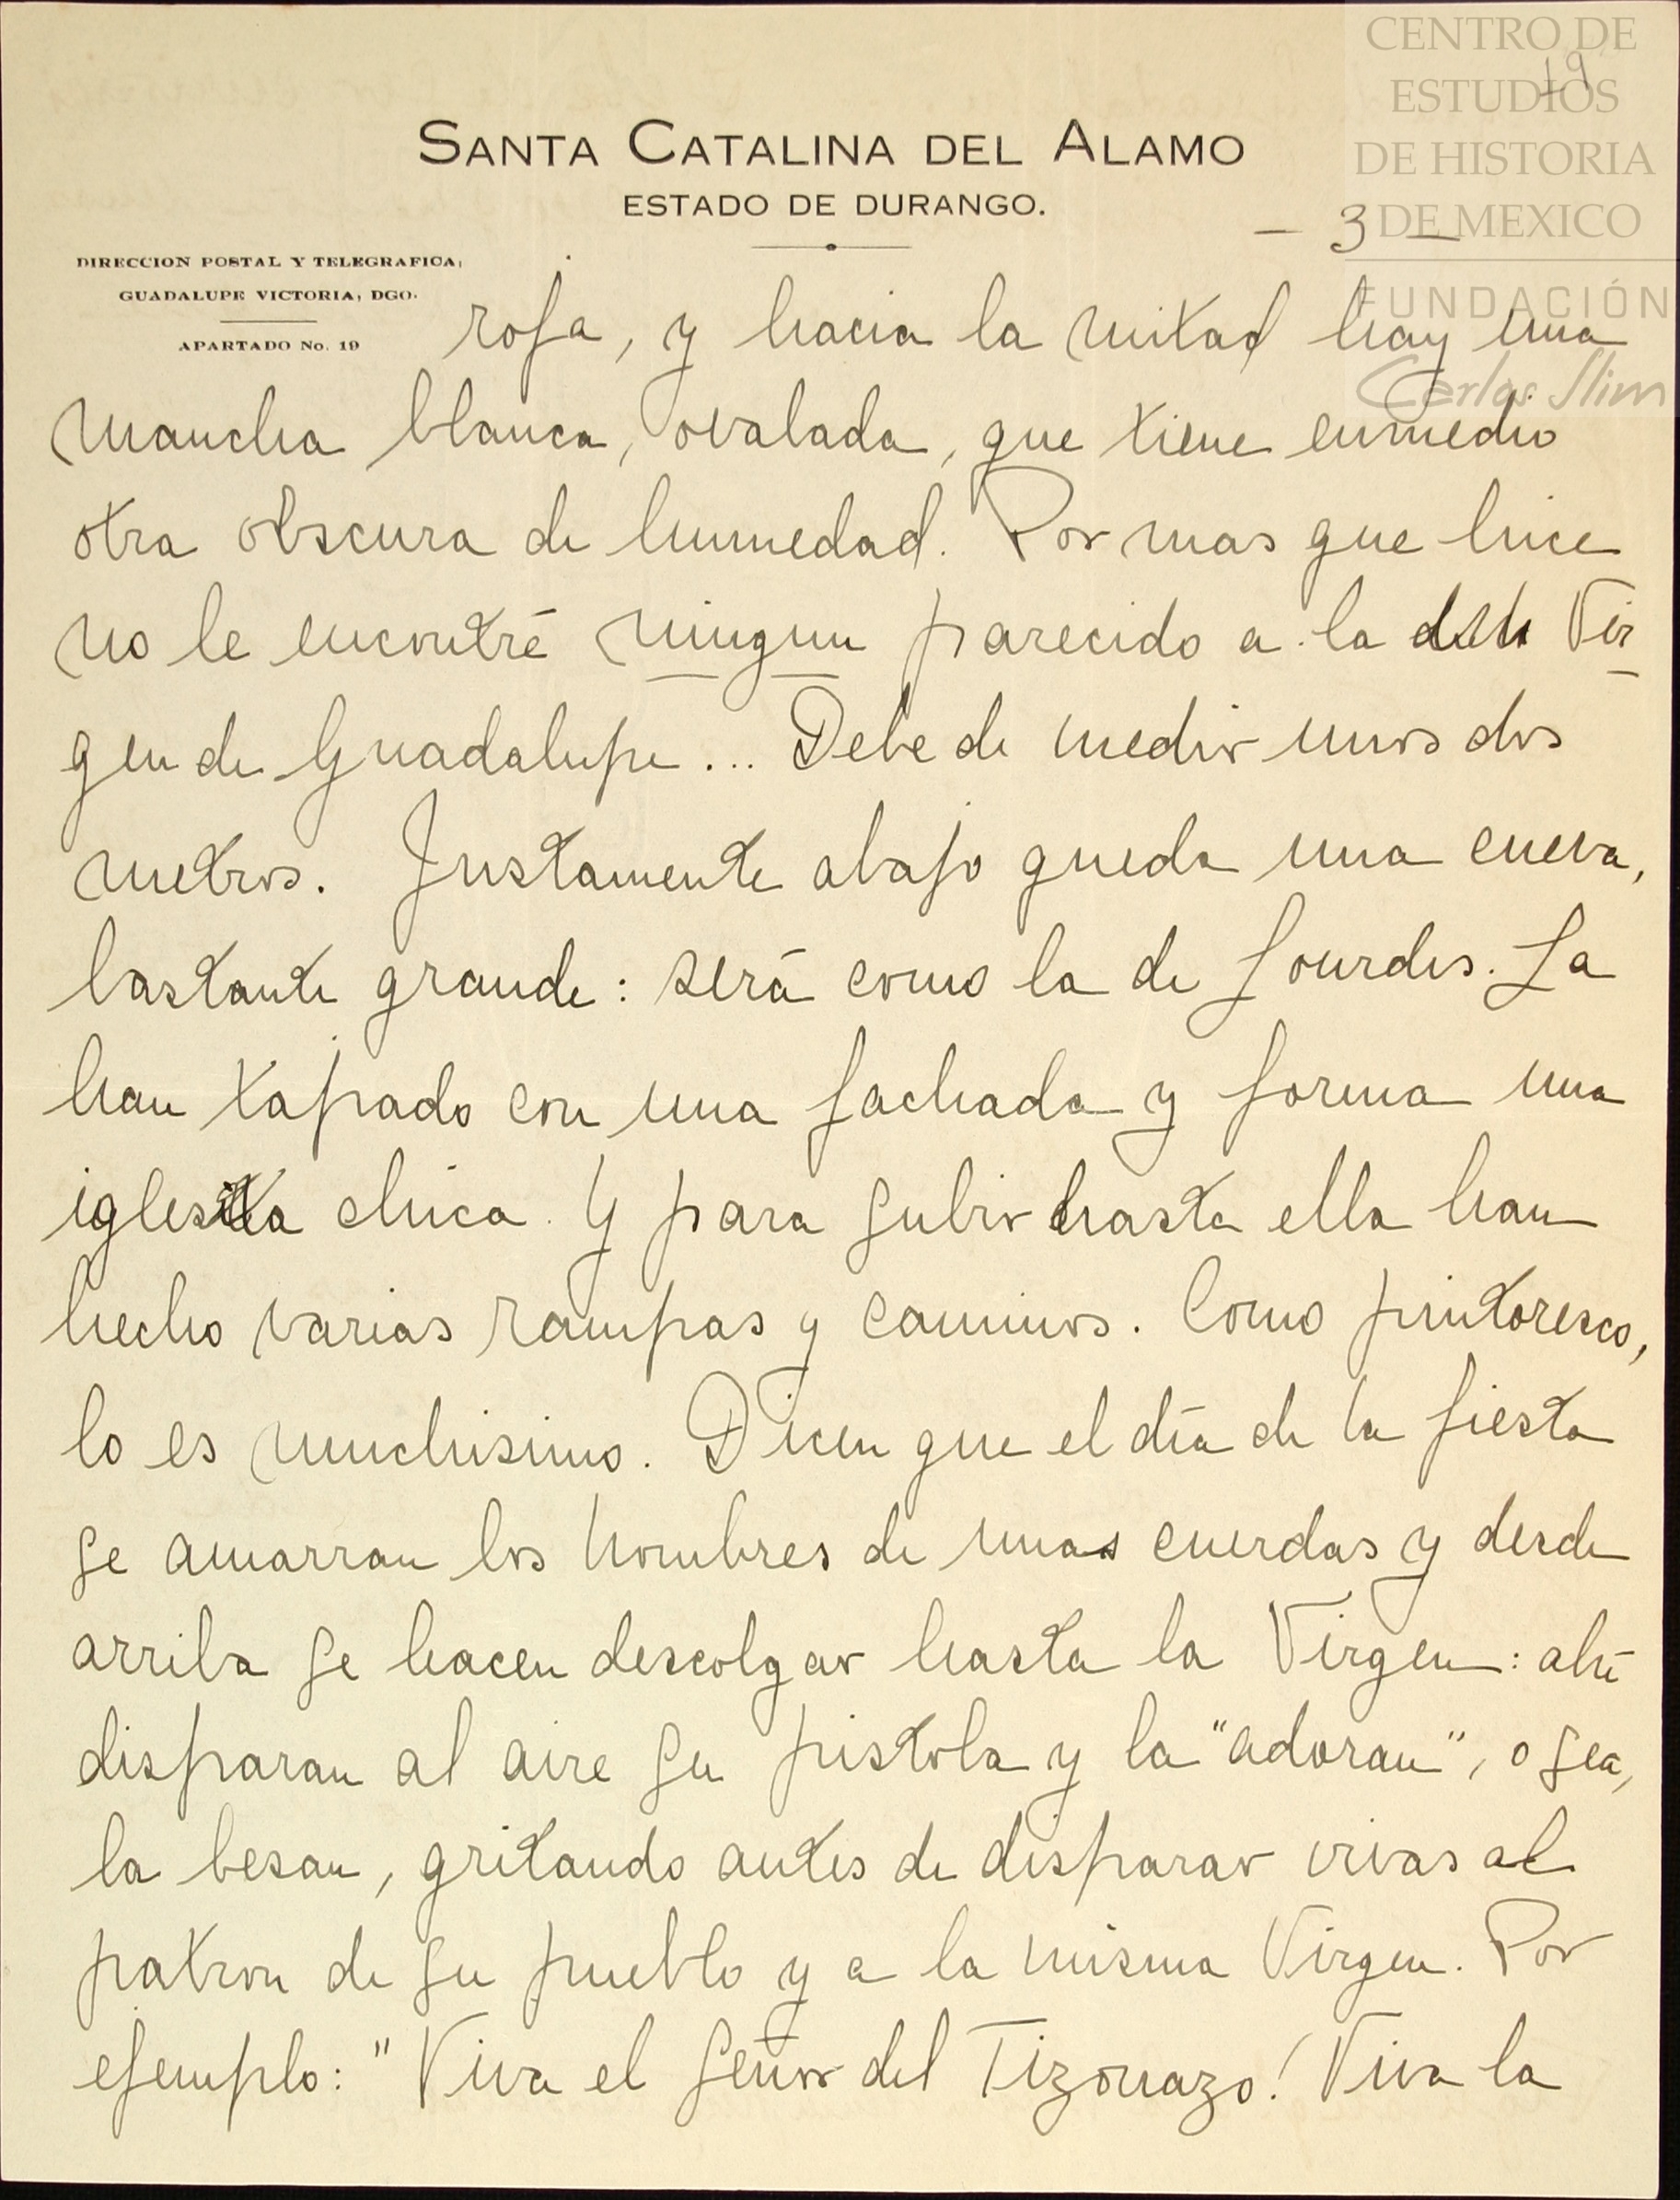 CENTRO DE
ESTUDIOS
DE HISTORIA
DE MEXICO
FUNDACIÓN
Carlos Slim
19
SANTA CATALINA DEL ALAMO
ESTADO DE DURANGO.
- 3 -
DIRECCION POSTAL Y TELEGRAFICA:
GUADALUPE VICTORIA, DGO.
APARTADO No. 19
roja, y hacia la mitad hay una
mancha blanca, ovalada, que tiene enmedio
otra obscura de humedad. Por mas que hice
no le encontré ningun parecido a la Vir
gen de Guadalupe... Debe de medir unos dos
metros. Justamente abajo queda una cueva,
bastante grande: será como la de Lourdes. La
han tapado con una fachada y forma una
iglesita chica. Y para subir hasta ella han
hecho varias rampas y caminos. Como pintoresco,
lo es muchisimo. Dicen que el día de la fiesta
se amarran los hombres de unas cuerdas y desde
arriba se hacen descolgar hasta la Virgen: ahí
disparan al aire su pistola y la "adoran", o sea,
la besan, gritando antes de disparar vivas al
patron de su pueblo y a la misma Virgen. Por
ejemplo: "Viva el Señor del Tizonazo! Viva la